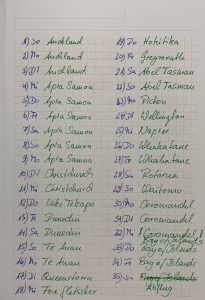 1) So Auckland
2) Mo Auckland
3) Di Auckland
4) Mi Apia Samoa
5) Do Apia Samoa
6) Fr Apia Samoa
7) Sa Apia Samoa
8) So Apia Samoa
9) Mo Apia Samoa
10) Di Christchurch
11) Mi Christchurch
12) Do Lake Tekapo
13) Fr Dunedin
14) Sa Dunedin
15) So Te Anau
16) Mo Te Anau
17) Di Queenstown
18) Mi Fox gletscher
19) Do Hokitika
20) Fr Greymouth
21) Sa Abel Tasman
22) So Abel Tasman
23) Mo Picton
24) Di Wellington
25) Mi Napier
26) Do Whakatane
27) Fr Whakatane
28) Sa Rotorua
29) So Waitomo
30) Mo Coromandel
31) Di Coromandel
32) Mi Coromandel / Bay of Islands
33) Do Bay of Islands
34) Fr Bay of Islands
35) Sa Bay of Islands
Abflug